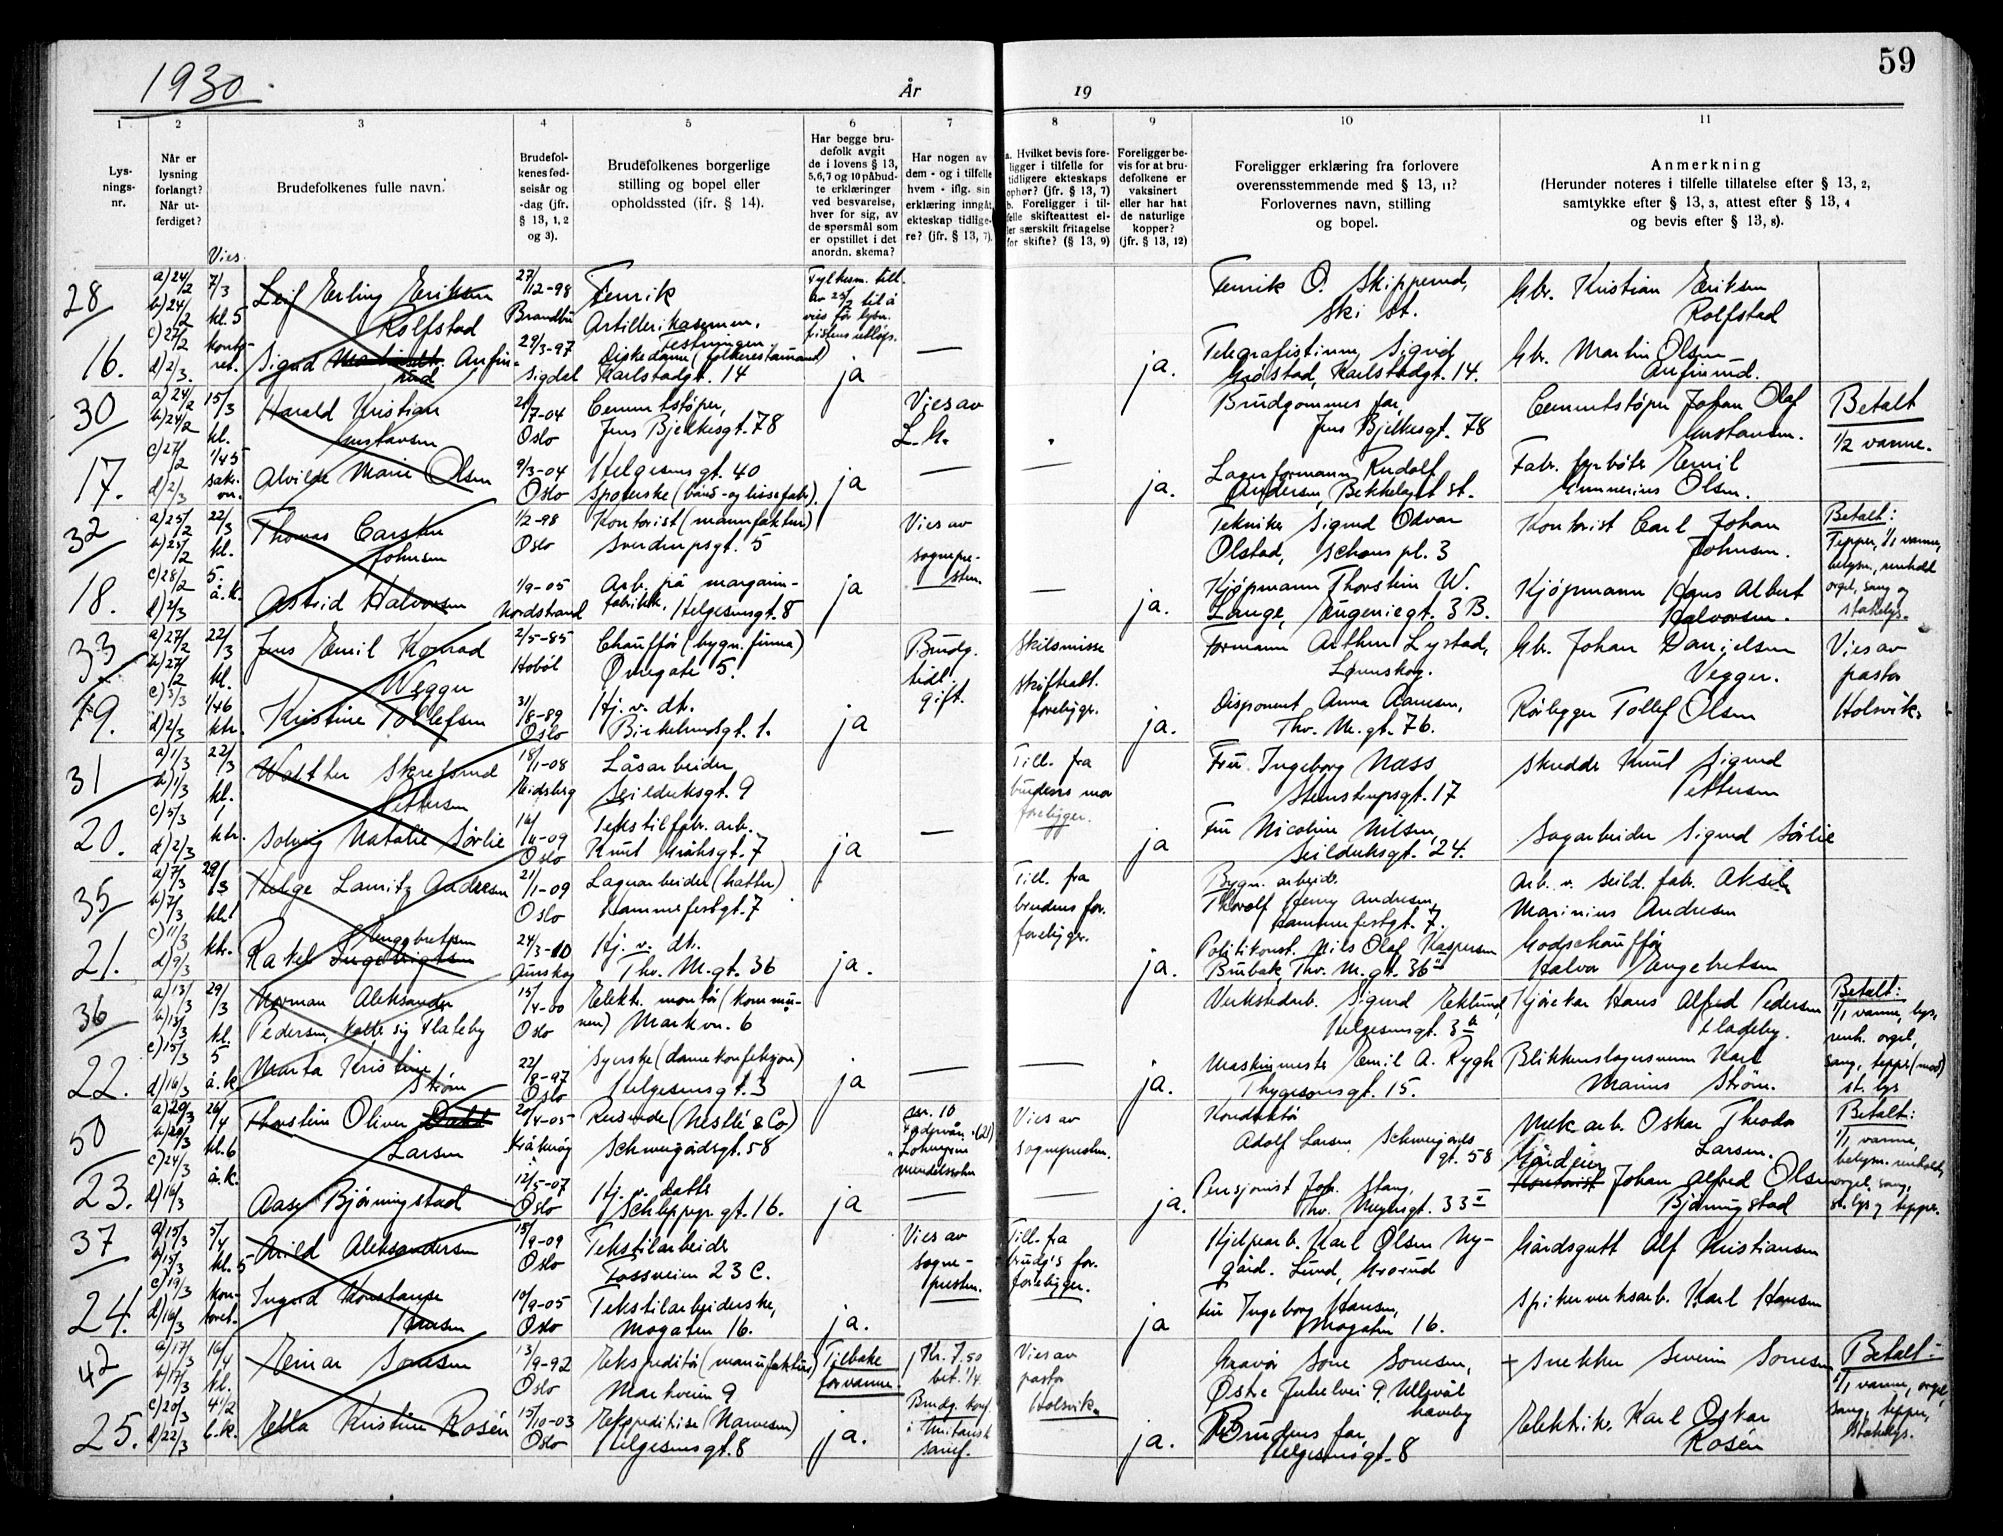 59
1930.
År
19
1
2
3
4
5
6
7
8
9
10
11
Lys-
nings-
nr.
Når er
lysning
forlangt?
Når ut-
ferdiget?
Vies.
Brudefolkenes fulle navn.
Brudefol-
kenes fød-
selsår og
-dag (jfr.
§ 13, 1, 2
og 3).
Brudefolkenes borgerlige
stilling og bopel eller
opholdssted (jfr. § 14).
Har begge bru-
defolk avgit
de i lovens § 13,
5,6,7 og 10 påbud-
te erklæringer
ved besvarelse,
hver for sig, av
de spørsmål som
er opstillet i det
anordn. skema?
Har nogen av
dem - og i tilfelle
hvem - iflg. sin
erklæring inngåt
ekteskap tidlige-
re? (jfr. § 13, 7).
a. Hvilket bevis fore-
ligger i tilfelle for
tidligere ekteskaps
ophør? (jfr. § 13, 7)
b. Foreligger i til-
felle skifteattest el-
ler særskilt fritagelse
for skifte? (§ 13, 9)
Foreligger be-
vis for at bru-
defolkene er
vaksinert
eller har hat
de naturlige
kopper?
(jfr. § 13, 12)
Foreligger erklæring fra forlovere
overensstemmende med § 13, 11?
Forlovernes navn, stilling
og bopel.
Anmerkning
(Herunder noteres i tilfelle tillatelse efter § 13, 2,
samtykke efter § 13, 3, attest efter § 13, 4
og bevis efter § 13, 8).
28
16.
a) 24/2
b) 24/2
c) 27/2
d) 2/3.
7/3
kl. 5
konto-
ret.
Leif Erling Eriksen
Rolfstad
Sigrid Anfin-
rud
27/12-98
Brandbu
29/3-97
Sigdal
Fenrik
Artillerikasernen,
Festningen.
Diskedame (folkerestaurand)
Karlstadgt. 14
Fylkesm. till.
av 25/2 til å
vies før lysn.
fristens utløp.
ja
—
ja.
Fenrik O. Skipperud,
Ski st.
Telegrafistinne Sigrid
Grøstad, Karlstadgt. 14.
Gbr. Kristian Eriksen
Rolfstad
Gbr. Martin Olsen
Anfinrud.
30
17.
a) 24/2
b) 24/2
c) 27/2
d) 2/3
15/3
kl.
1/45
Harald Kristian
Gustavsen
Alvilde Marie Olsen
21/7-04
Oslo
9/3-04
Oslo
Cementstøper,
Jens Bjelkesgt. 78
Helgesensgt. 40
Spolerske (bånd- og lissefabr.)
ja
Vies av
L. H.
—
—
ja.
Brudgommens far,
Jens Bjelkesgt. 78
Lagerformann Rudolf
Andersen, Bekkelaget st.
Cementstøper Johan Olaf
Gustavsen.
Fabr. fyrbøter Emil
Gunnerius Olsen.
Betalt
1/2 varme.
32
18.
a) 25/2
b) 25/2
c) 28/2
d) 2/3
22/3
kl.
5.
å. k.
Thomas Carsten
Johnsen
Astrid Halvorsen
1/2-98
Oslo
1/9-05
Nordstrand
Kontorist (manufaktur)
Sverdrupsgt. 5
Arb. på margarin-
fabrikk. Helgesensgt. 8
ja
Vies av
sognepre-
sten.
—
ja.
Tekniker Sigurd Odvar
Olstad, Schous pl. 3
Kjøpmann Thorstein W.
Lange, Eugeniegt. 3 B.
Kontorist Carl Johan
Johnsen.
Kjøpmann Hans Albert
Halvorsen.
Betalt:
Tepper, 1/1 varme,
belysn., renhold
orgel, sang og
stakelys.
33
19.
a) 27/2
b) 27/2
c) 3/3
d) 2/3
22/3
kl.
1/46
ktr.
Jens Emil Konrad
Vegger
Kristine Tollefsen
2/5-85
Hobøl
31/8-89
Oslo
Chauffør (bygn. firma)
Øvregate 5.
Hj. v. dt.
Birkelundsgt. 1.
ja
Brudg.
tidl.
gift.
Skilsmisse
skifteatt.
foreligger.
ja.
Formann Arthur Lystad,
Lørenskog.
Disponent Anna Aanesen,
Thv. M. gt. 76.
Gbr. Johan Danielsen
Vegger.
Rørlegger Tollef Olsen
Vies av
pastor
Holsvik.
31
20.
a) 1/3
b) 1/3
c) 5/3
d) 2/3
22/3
kl.
1
ktr.
Walther Skrefsrud
Pettersen
Solveig Natalie Sørlie
18/1-08
Eidsberg
16/11-09
Oslo
Låsarbeider
Seilduksgt. 9
Tekstilfabr. arb.
Knut Gråhsgt. 7
ja
—
Till. fra
brudens mor
foreligger.
ja
Fru Ingeborg Næss
Steenstrupsgt. 17
Fru Nicoline Nilsen,
Seilduksgt. 24.
Skredder Knut Sigurd
Pettersen
Sagarbeider Sigurd Sørlie
35
21.
a) 7/3
b) 7/3
c) 11/3
d) 9/3
29/3
kl. 1
ktr.
Helge Lauritz Andersen
Engebretsen
Rakel Ingebrigtsen
21/1-09
Oslo
24/3-10
Aurskog
Lagerarbeider (hatter)
Hammerfestgt. 7
Hj. v. dt.
Thv. M. gt. 36
ja.
Till. fra
brudens for.
foreligger.
ja.
Bygn. arbeider
Thorolf Henry Andersen,
Hammerfestgt. 7.
Politikonst. Nils Olaf Kaspersen
Brubak, Thv. M. gt. 36 II
Arb. v. Seild. fabr. Aksel
Marinius Andersen
Godschauffør
Halvor Engebretsen
36
22.
a) 13/3
b) 13/3
c) 15/3
d) 16/3
29/3
kl.
5
å. k.
Norman Aleksander
Pedersen, kaller sig Fladeby
Marta Kristine
Strøm
15/4-00
Oslo
22/9-97
Oslo
Elektr. montør (kommu-
nen) Markvn. 6
Syerske (damekonfeksjon)
Helgesensgt. 3
ja
—
—
ja.
Verkstedarb. Sigurd Eklund,
Helgesensgt. 3 a
Maskinmester Emil A. Rygh
Thygesonsgt. 15.
Kjørekar Hans Alfred Pedersen
Fladeby.
Blikkenslagersvenn Karl
Marius Strøm.
Betalt:
1/1 varme, lys,
renh. orgel,
sang, tepper (mod)
st. lys
50
23.
a) 29/3
b) 29/3
c) 24/3
d) 16/3
26/4
kl. 6
å. k.
Thorstein Oliver Dahl
Larsen
Aase Bjørningstad
20/4-05
Kråkerøy
12/5-07
Oslo
Reisende (Nestlé & Co)
Schweigårdsgt. 58
Hj. v. datter
Schleppegr. gt. 16.
ja
Lohengrin
Mendelssohn
—
Vies av
sognepresten.
—
ja.
Konduktør
Adolf Larsen, Schweigårds
gt. 58
Pensjonist Joh. Stang,
Thv. Meyersgt. 33 II
Mek. arb. Oskar Theodor
Larsen.
Gårdeier
Kontorist Johan Alfred Olsen
Bjørningstad
Betalt:
1/1 varme,
belysn. renhold,
orgel, sang,
st. lys og tepper.
37
24.
a) 15/3
b) 15/3
c) 19/3
d) 16/3
5/4
kl. 5
kon-
toret.
Arild Aleksandersen
Ingrid Konstanse
Hansen
15/9-09
Oslo
10/9-05
Oslo
Tekstilarbeider
Fossveien 23 C.
Tekstilarbeiderske,
Mogaten 16.
ja.
Vies av
sogne-
presten.
Till. fra
brudg's for.
foreligger.
ja
Hjelpearb. Karl Olsen Ny-
gård. Lund, Grorud
Fru Ingeborg Hansen,
Mogaten 16.
Gårdsgutt Alf Kristiansen
Spikerverksarb. Karl Hansen
42
25.
a) 17/3
b) 17/3
c) 20/3
d) 22/3
16/4
kl.
4 1/2
å. k.
Einar Sonesen
Ella Kristine Rosén
13/9-92
Oslo
15/10-03
Oslo
Ekspeditør (manufaktur)
Markveien 9
Ekspeditrise (Narvesen)
Helgesensgt. 8
Tilbake
for varme.
ja.
Kr. 7.50
bet. 1/4.
Brudg. konf.
i Unitarisk
samf.
Vies av
pastor
Holsvik.
ja.
Gravør Sone Sonesen,
Østre Jutulvei 9. Ullevål
haveby
Brudens far
Helgesensgt. 8
+ Snekker Severin Sonesen
Elektrik. Karl Oskar
Rosén
Betalt:
1/1 varme, orgel,
sang, tepper,
stakelys.